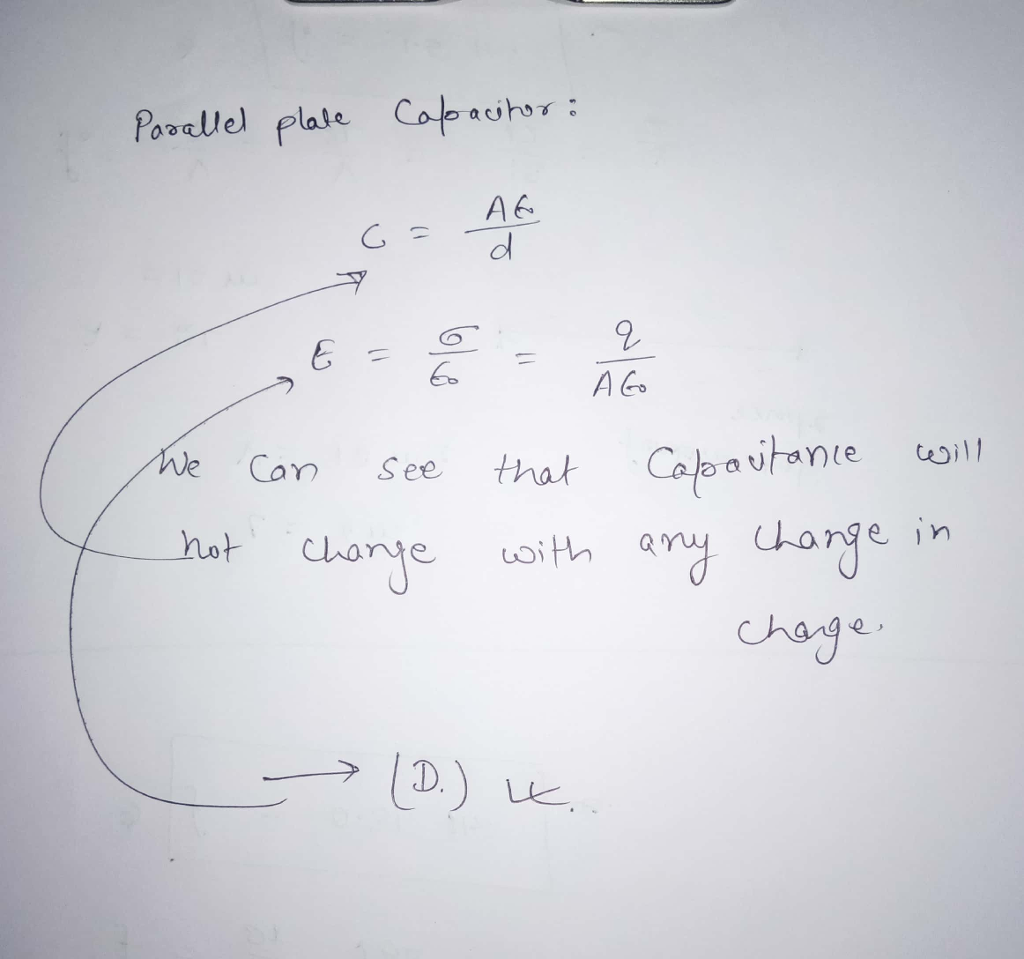 Parallel plate Capacitor:
C = Aϵ₀/d
E = σ/ϵ₀ = q/Aϵ₀
We can see that Capacitance will
not change with any change in
charge.
→ (D.)